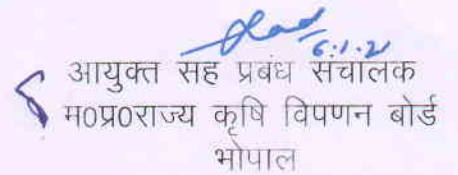 6.1.21
आयुक्त सह प्रबंध संचालक
म0प्र0राज्य कृषि विपणन बोर्ड
भोपाल